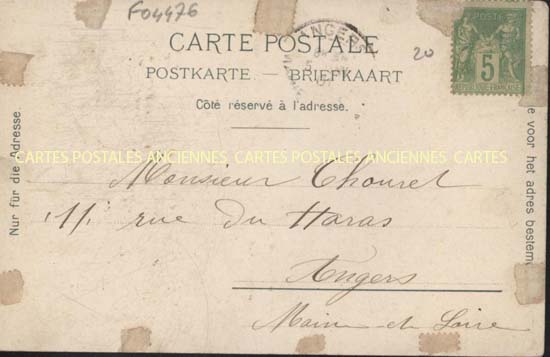 F04476
ANGERS
20
CARTE POSTALE
POSTE
5
REPUBLIQUE FRANÇAISE
POSTKARTE. — BRIEFKAART
Côté réservé à l'adresse.
Nur für die Adresse.
e voor het adres bestemd
CARTES POSTALES ANCIENNES, CARTES POSTALES ANCIENNES CARTES
Monsieur Chouret
11 rue du Haras
Angers
Maine et Loire